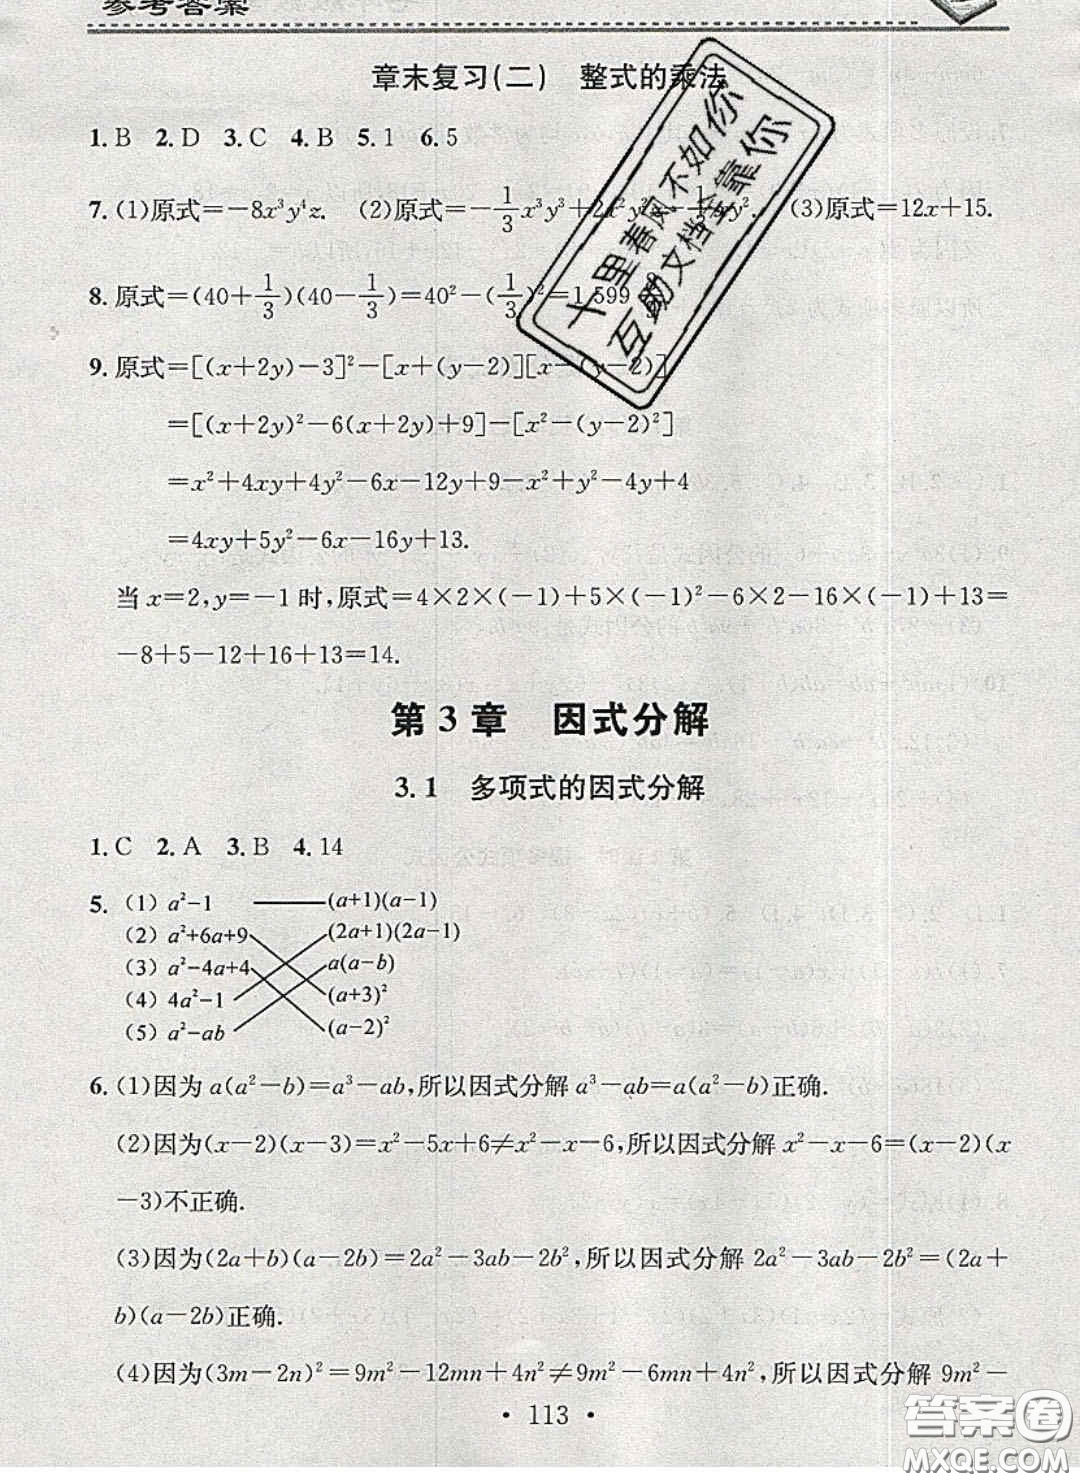 参考答案
章末复习(二) 整式的乘法
1. B 2. D 3. C 4. B 5. 1 6. 5
7. (1)原式=-8x³y⁴z. (2)原式=-1/3x³y³+2x²y² xy². (3)原式=12x+15.
8. 原式=(40+1/3)(40-1/3)=40²-(1/3)²=1 599
9. 原式=[(x+2y)-3]²-[x+(y-2)][x-(y-2)]
=[(x+2y)²-6(x+2y)+9]-[x²-(y-2)²]
=x²+4xy+4y²-6x-12y+9-x²+y²-4y+4
=4xy+5y²-6x-16y+13.
当x=2,y=-1时,原式=4×2×(-1)+5×(-1)²-6×2-16×(-1)+13=
-8+5-12+16+13=14.
十里春风不如你
互助文档全靠你
第3章 因式分解
3.1 多项式的因式分解
1. C 2. A 3. B 4. 14
5. (1) a²-1 (a+1)(a-1)
(2) a²+6a+9 (2a+1)(2a-1)
(3) a²-4a+4 a(a-b)
(4) 4a²-1 (a+3)²
(5) a²-ab (a-2)²
6. (1)因为a(a²-b)=a³-ab,所以因式分解a³-ab=a(a²-b)正确.
(2)因为(x-2)(x-3)=x²-5x+6≠x²-x-6,所以因式分解x²-x-6=(x-2)(x
-3)不正确.
(3)因为(2a+b)(a-2b)=2a²-3ab-2b²,所以因式分解2a²-3ab-2b²=(2a+
b)(a-2b)正确.
(4)因为(3m-2n)²=9m²-12mn+4n²≠9m²-6mn+4n²,所以因式分解9m²-
· 113 ·
答案圈
MXQE.COM